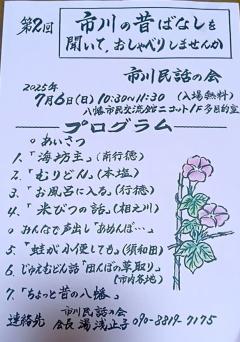 第2回
市川の昔ばなしを
聞いて、おしゃべりしませんか
市川民話の会
2025年
7月6日(日)10:30〜11:30(入場無料)
八幡市民交流館ニコット1F多目的室
プログラム
○ あいさつ
1.「海坊主」(南行徳)
2.「むりどん」(本塩)
3.「お風呂に入る」(行徳)
4.「米びつの話」(相之川)
○ みんなで声出し「あめんぼ…」
5.「蛙が小便しても」(須和田)
6. じゅえむどん話「田んぼの草取り」
(市内各地)
7.「ちょっと昔の八幡」
市川民話の会
連絡先 会長 湯浅止子 090-8819-7175